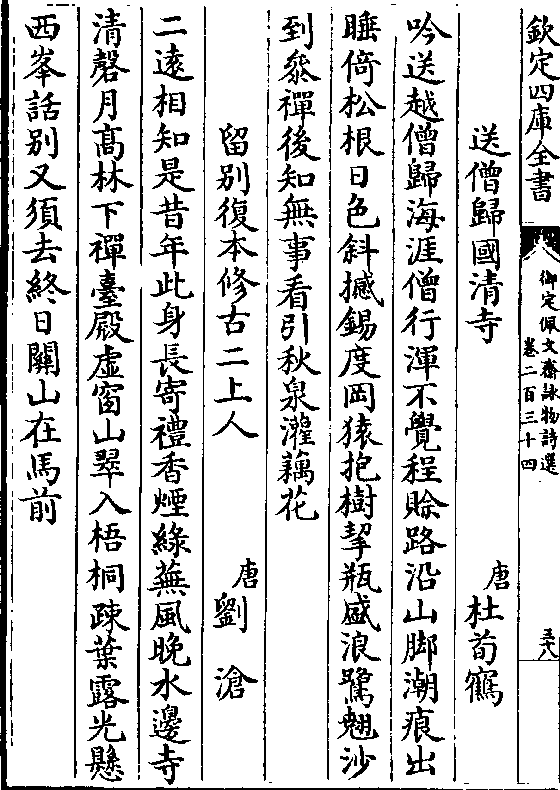 欽定四庫全書
御定佩文齋詠物詩選
卷二百三十四
五八
送僧歸國清寺
唐杜荀鶴
吟送越僧歸海涯僧行渾不覺程賒路沿山脚潮痕出
睡倚松根日色斜撼錫度岡猿抱樹挈瓶盛浪鷺翹沙
到參禪後知無事看引秋泉灌藕花
留别復本修古二上人
唐劉滄
二逺相知是昔年此身長寄禮香煙綠蕪風晚水邊寺
清磬月髙林下禪臺殿虚窗山翠入梧桐踈葉露光懸
西峯話别又須去終日關山在馬前